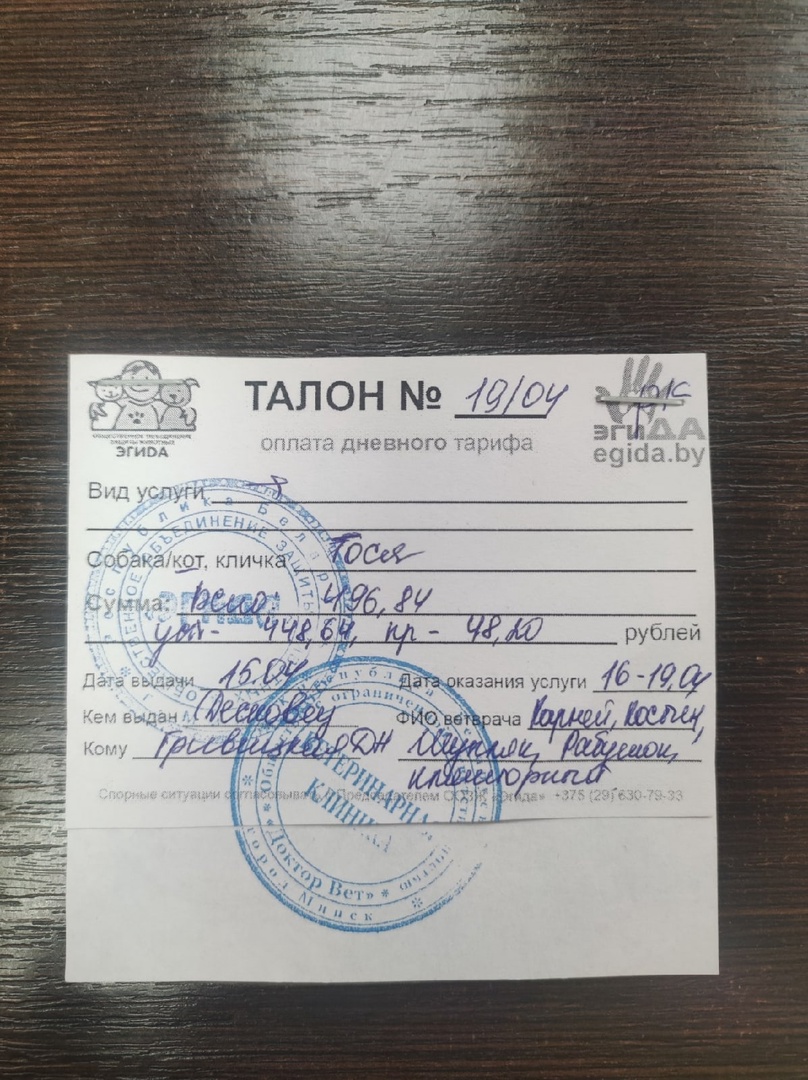 ТАЛОН № 19/04
оплата дневного тарифа
ОБЩЕСТВЕННОЕ ОБЪЕДИНЕНИЕ
ЗАЩИТЫ ЖИВОТНЫХ
ЭГИДА
ЭГИДА
egida.by
Вид услуги
Собака/кот, кличка Тося
Сумма: 496,84
усл- 448,64, пр- 48,20 рублей
Дата выдачи 15.04 Дата оказания услуги 16-19,04
Кем выдан ФИО ветврача Карней,
Кому Гривицкая ДН
Спорные ситуации согласовывать с Председателем ООЗЖ «Эгида» +375 (29) 630-79-33
Республика Беларусь
ОБЪЕДИНЕНИЕ ЗАЩИТЫ
ЭГИДА
ВЕТЕРИНАРНАЯ
КЛИНИКА
«Доктор Вет»
город Минск